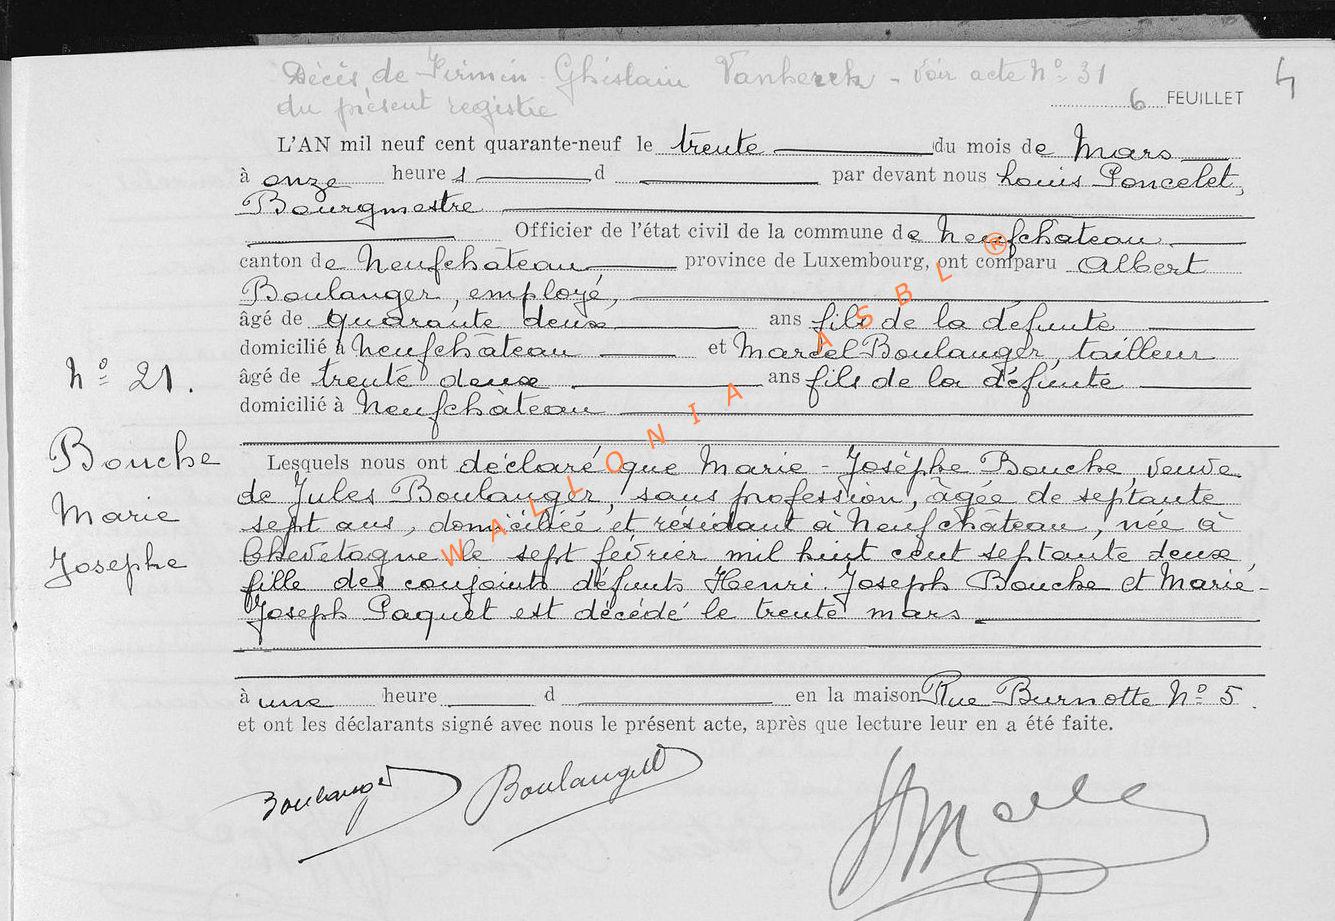 Décès de Firmin-Ghislain Vanherck - Voir acte N° 31
du présent registre
4
6 FEUILLET
L'AN mil neuf cent quarante-neuf le trente du mois de Mars
à onze heures d par devant nous Louis Poncelet,
Bourgmestre
Officier de l'état civil de la commune de Neufchateau
canton de Neufchâteau province de Luxembourg, ont comparu Albert
Boulanger, employé,
âgé de quarante deux ans fils de la défunte
domicilié à Neufchâteau et Marcel Boulanger, tailleur
N° 21.
âgé de trente deux ans fils de la défunte
domicilié à Neufchâteau
Bouche
Marie
Josephe
Lesquels nous ont déclaré que Marie-Josèphe Bouche, veuve
de Jules Boulanger, sans profession, âgée de septante
sept ans, domiciliée et résidant à Neufchâteau, née à
Chevetogne le sept février mil huit cent septante deux
fille des conjoints défunts Henri-Joseph Bouche et Marie-
Joseph Paquet est décédé le trente mars
à une heure d en la maison Rue Burnotte N° 5.
et ont les déclarants signé avec nous le présent acte, après que lecture leur en a été faite.
Boulanger Boulanger
WALLONIA ASBL ®